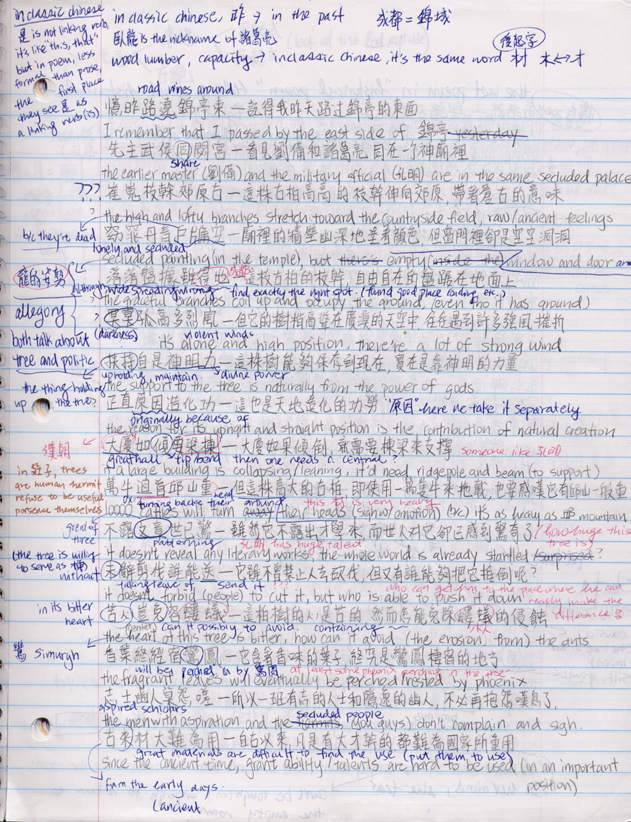 in classic chinese
是 is not linking verb
it's like "this, that"
but in poem, less
formal than prose,
the first place
they see 是 as
a linking verb (is)
in classic chinese, 昨 → in the past
成都 = 錦城
臥龍 is the nickname of 諸葛亮
後起字
word number, capacity → in classic chinese, it's the same word 材 木↔才
road wines around
憶昨路遶錦亭東 — 記得我昨天路過錦亭的東面
I remember that I passed by the east side of 錦亭 yesterday
先主武侯同閟宮 — 看見劉備和諸葛亮同在一個神廟裡
share
the earlier master (劉備) and the military official (孔明) are in the same secluded palace
???
崔嵬枝幹郊原古 — 這株古柏高高的枝幹伸向郊原，帶着蒼古的意味
the high and lofty branches stretch toward the countryside field, raw/ancient feelings
b/c they're dead
窈窕丹青戶牖空 — 廟裡的牆壁幽深地塗着顏色，但窗門裡卻是空空洞洞
lonely and secluded
secluded painting (in the temple), but there's empty (inside the) window and door are
龍的姿勢
落落盤踞雖得地 — 這枝古柏的枝幹，自由自在的盤踞在地面上
wide spreading find exactly the right spot (found good place landing, etc.)
the graceful branches coil up and occupy the ground (even tho it has ground)
allegory
冥冥孤高多烈風 — 但它的樹柏高聳在廣漠的天空中，往往遇到許多強風摧折
(darkness) violent winds
both talk about
tree and politic
it's alone and high position, there're a lot of strong wind
扶持自是神明力 — 這株樹能夠保存到現在，實在是靠神明的力量
uprooting, maintain divine power
the thing holding
up the tree?
the support to the tree is naturally from the power of gods
正直原因造化功 — 這也是天地造化的功勞 "原因" here we take it separately
originally because of
the reason for its upright and straight position is the contribution of natural creation
大廈如傾要梁棟 — 大廈如果傾倒，就需要棟梁來支撐
great hall tip board then one needs a central? someone like 孔明
in 莊子, trees
are human hermit
refuse to be useful
possess themselves
if a large building is collapsing/leaning, it'd need ridgepole and beam (to support)
萬牛迴首丘山重 — 但這株高大的古柏，即使用一萬隻牛來拖載，也要感嘆它有邱山一般重
ox turning backe their head around this tree is very heavy
10000 cows will turn away their heads (sigh/emotion) (bc) its as heavy as mountain
不露文章世已驚 — 雖然它不露出才學來，而世人對它卻已感到驚奇了
patterning 孔明 has huge talent how huge this tree is
it doesn't reveal any literary works, the whole world is already startled (surprised)
(the tree is willing
to serve as 棟)
未辭剪伐誰能送 — 它雖不曾禁止人家砍伐，但又有誰能夠把它推倒呢？
without taking leave of send it who can get him to the place where he can really make the difference
it doesn't forbid (people) to cut it, but who is able to push it down
in its bitter
heart
苦心豈免容螻蟻 — 這柏樹的心是苦的，然而怎能免除螻蟻的侵蝕
can it possibly to avoid containing
the heart of this tree is bitter, how can it avoid (the erosion from) the ants
鸞 Simurgh
香葉終經宿鸞鳳 — 它含着香味的葉子，終究是鸞鳳棲宿的地方
will be perched on by 鸞鳳 at least some phoenix perching in the tree
the fragrant leaves will eventually be perched/nested by phoenix
志士幽人莫怨嗟 — 所以一班有志的人士和隱逸的幽人，不必再抱怨嘆息了，
aspired scholars secluded people
the men with aspiration and the hermits (you guys) don't complain and sigh.
古來材大難為用 — 自古以來，凡是有大才幹的都難為國家所重用
great materials are difficult to find the use (put them to use)
since the ancient time, great ability/talents are hard to be used (in an important position)
from the early days
(ancient